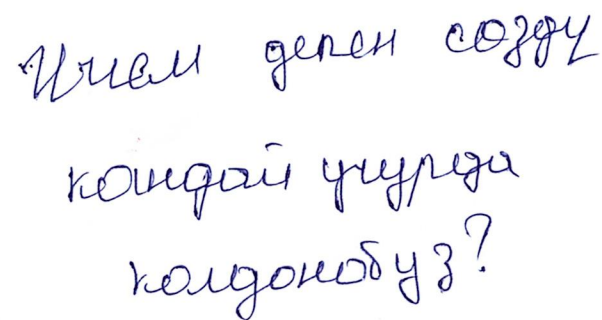 Ичем деген созду
кандай учурда
колдонобуз?